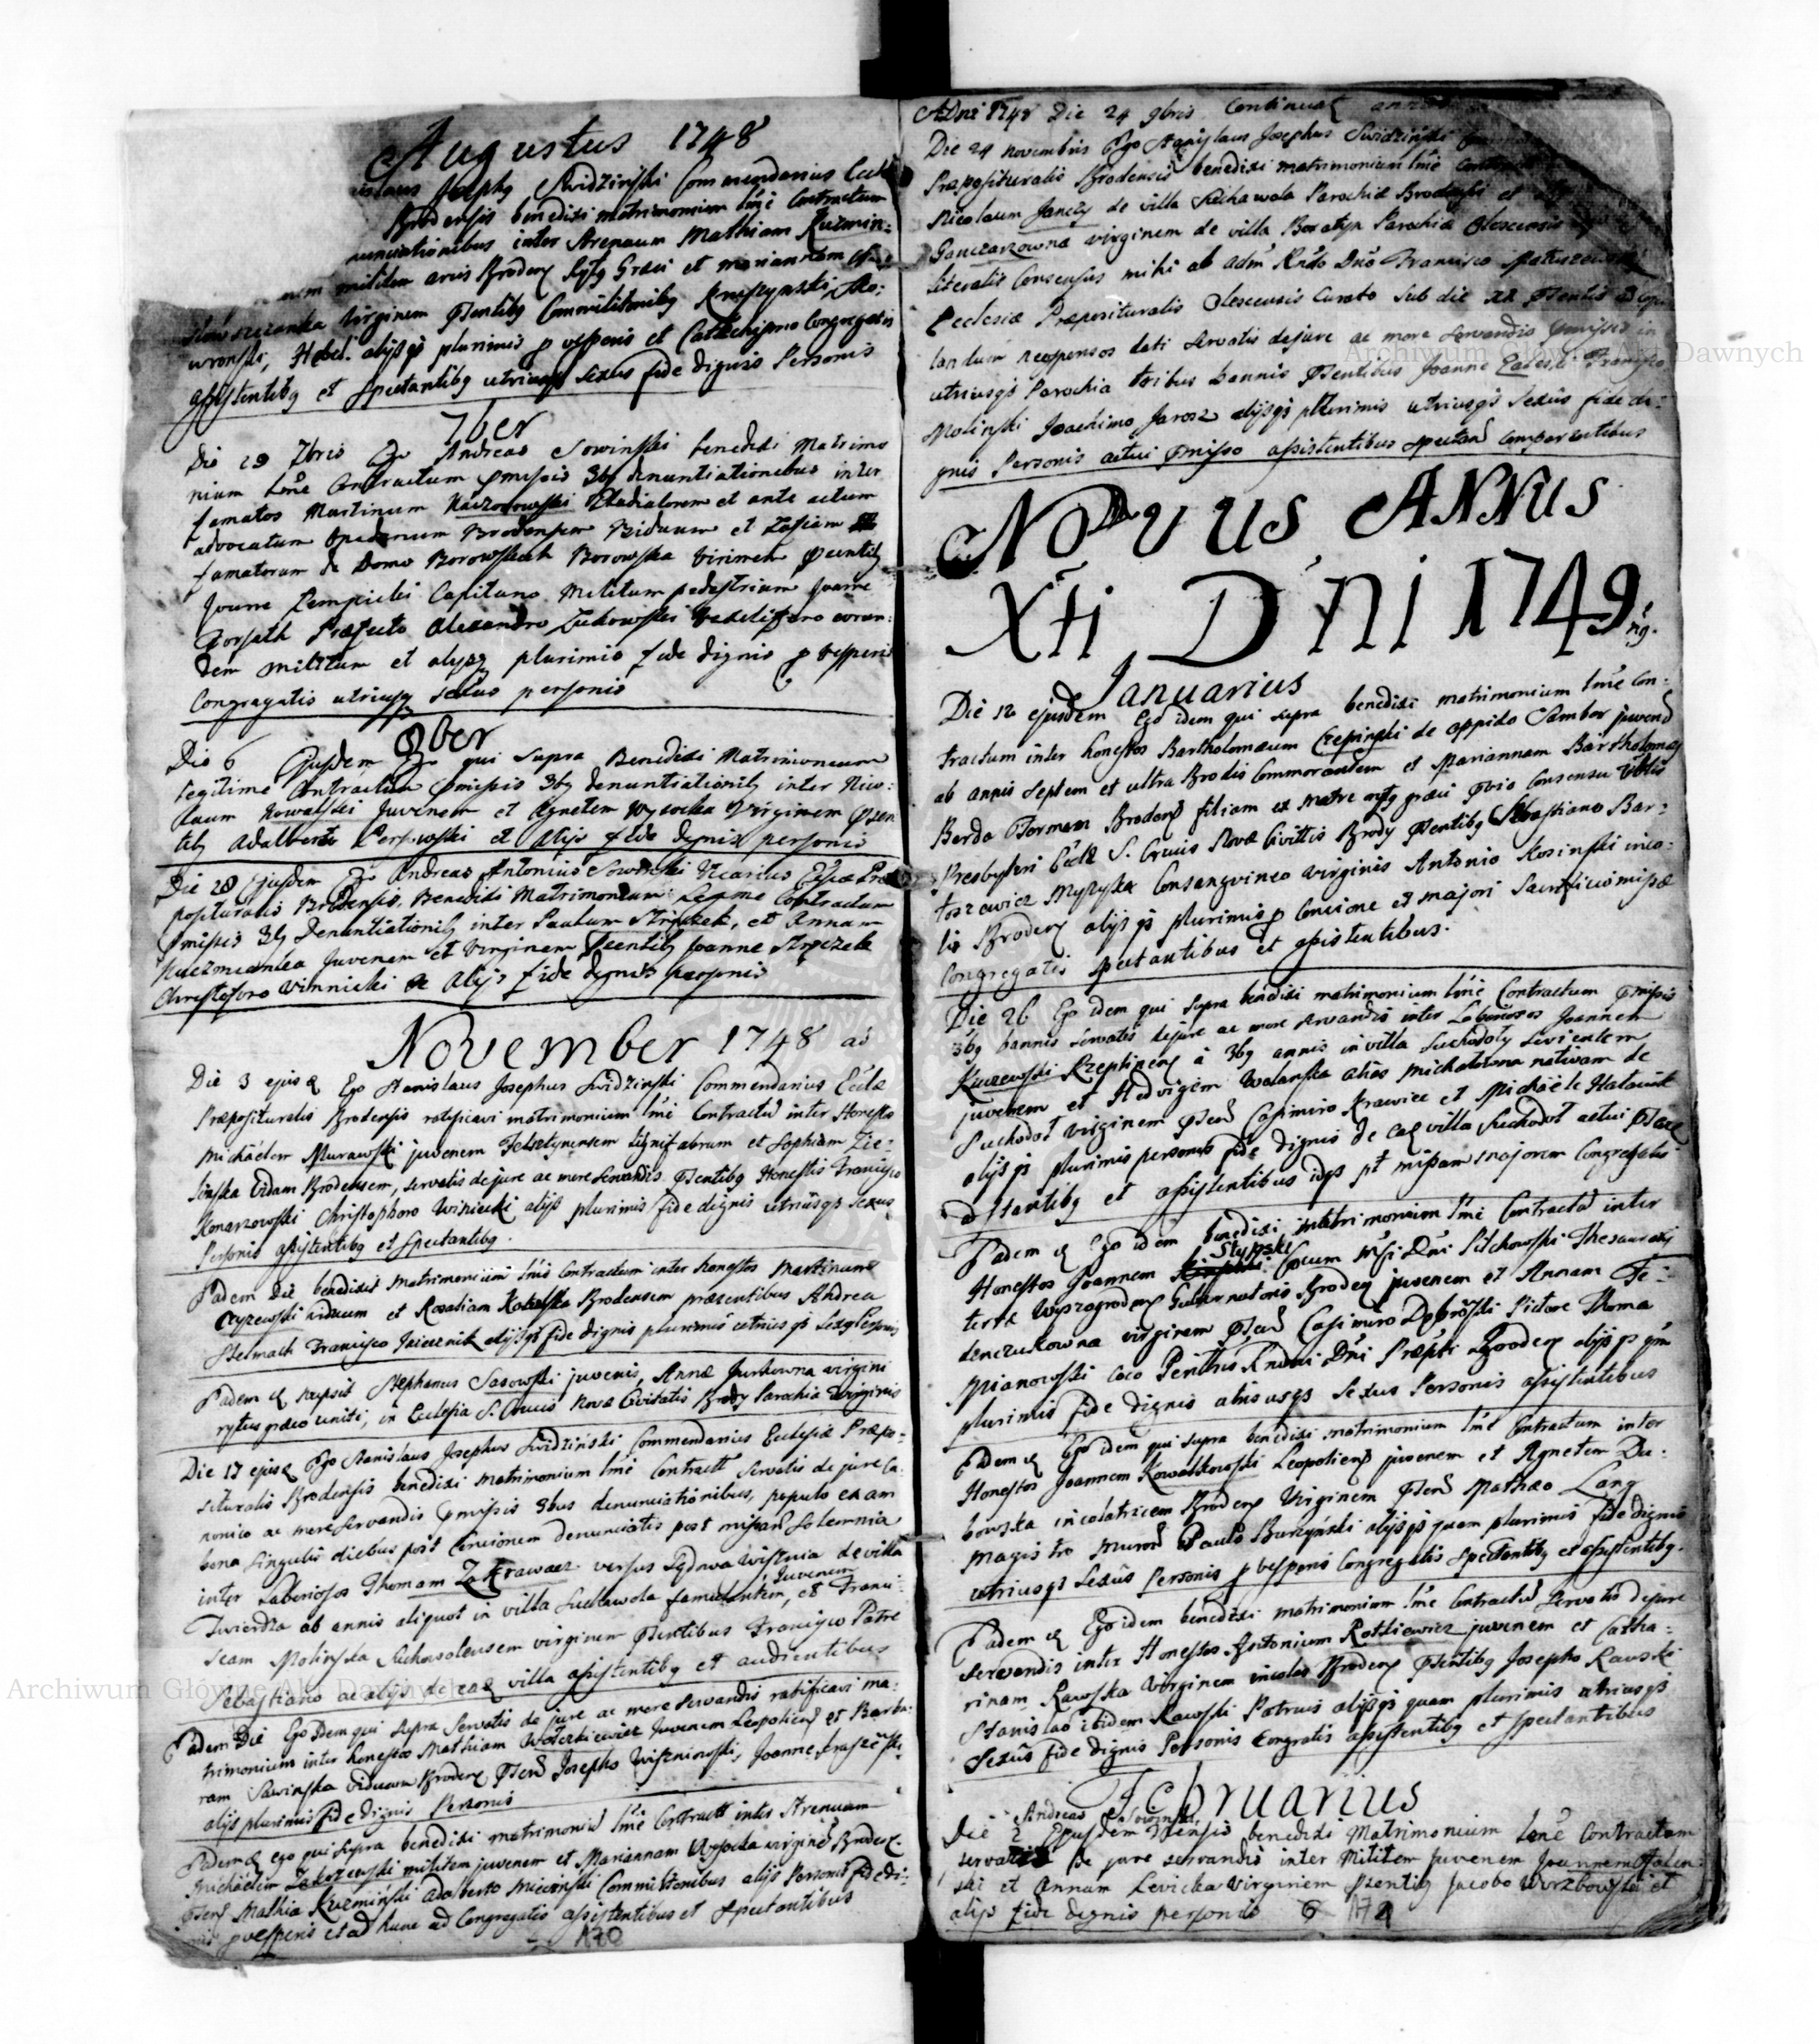 Augustus 1748
Josephg Swidzinski Commendarius Eccl
Brodensis benedixi matrimonium ltmè Contractum
nunciationibus inter Strenuum Mathiam Kuzmin:
militem arcis Brodens Rytg Græci et mariannam
virginem Pntibg Commilitonibg
wronski, Hebel. alijsqs plurimis p vesperis et Cathechismo Congregatis
assistentibg et spectantibg utriusqs sexus fide dignis Personis
7ber
Die 29 7bris Ego Andreas Sowinski benedixi Matrimo
nium ltme Contractum pmissis 3bg denuntiationibus inter
famatos Martinum Kaczorowski Gladiatorem et ante actum
advocatum Brodensem Viduum et Zofiam
famatorum de Domo Borowskich Borowska Virinem psentibg
Joanne Pempicki Capitano Militum pedestrium Joanne
Horjath Præfecto Alexandro Zukowski Vexillifero eorun:
dem militum et alysqz plurimis fide dignis p vesperis
Congregatis utriusqz sexus personis
8ber
Die 6 Ejusdem Ego qui supra Benedixi Matrimonium
legitime Contractum pmissis 3bg denuntiationibg inter Nico:
laum Kowalski Juvenem et Agnetem Wysocka Virginem psen
tibg Adalberto et alijs fide dignis personis
Die 28 Ejusdem Ego Andreas Antonius Sowinski Vicarius Ecclæ Præ
posituralis Brodensis, Benedixi Matrimonium Legme Contractum
pmissis 3bg Denuntiationibg inter Paulum Strzyzek, et Annam
Kuzmianka Juvenem et Virginem Psentibg Joanne Strzezek
Christoforo Vinnicki et Alijs fide dignis personis
November 1748 ad
Die 3 ejusd Ego Stanislaus Josephus Swidzinski Commendarius Ecclæ
Præposituralis Brodensis ratificavi matrimonium ltmè Contractū inter Honestos
Michäelem Murawski juvenem Felsztynensem lignifabrum et Sophiam Zie:
linska Viduam Brodensem, servatis de jure ac more servandis Psentibg Honestis Francisco
Komarzowski Christophoro Wisniecki alijs plurimis fide dignis utriusqs sexus
Personis assistentibg et spectantibg.
Eadem Die benedixit matrimonium ltmè Contractum inter honestos Martinum
Cyzewski viduum et Rosaliam Kobelska Brodensem præsentibus Andrea
Stelmach Francisco alijsqs fide dignis plurimis utriusqs Sexgs Personis
Eadem d rupsit Stephanus Sasowski juvenis, Annæ Jurkowna virgini
rytus græco uniti, in Ecclesia S. Crucis Novæ Civitatis Brody Parochia Virginis
Die 17 ejusd Ego Stanislaus Josephus Swidziński Commendarius Ecclesiæ Præpo:
situralis Brodensis benedixi matrimonium ltmè Contractū servatis de jure Ca:
nonico ac more servandis pmissis 3bus denunciationibus, populo ex am
bona singulis diebus post Concionem denunciatis post missam solemnia
inter Laboriosos Thomam Zakrawacz versus Lydwa Wisznia de villa
Juvenem
Twierdza ab annis aliquot in villa Suchawola famulantem, et Franci:
scam Molinska Suchowolensem virginem Psentibus Francisco Patre
Sebastiano ac alijs de ead villa assistentibg et audientibus
Eadem Die Ego idem qui supra servatis de jure ac more servandis ratificavi ma:
trimonium inter honestos Mathiam Woleckiewicz Juvenem Leopoliens et Barba:
ram Sawinska viduam Brodens Psent Josepho Wiszniowski, Joanne
alijs plurimis fide dignis Personis
Eadem d ego qui supra benedixi matrimoniū ltmè Contractū inter Strenuum
Michäelem Zakrzewski militem juvenem et Mariannam Wysocka virginē Brodens.
Psent Mathia Kuzmiński Adalberto Miecinski Commilitonibus alijs Personis fide di:
gnis p vesperis et ad hunc ad Congregatis assistentibus et spectantibus
170
A Dni 1748 Die 24 9bris Continuat annus
Die 24 novembris Ego Stanislaus Josephus Swidzinski
Præposituralis Brodensis benedixi matrimonium ltmè Contractum
Nicolaum Janczy de villa Suchawola Parochiæ Brodensis et
Ganczarzowna virginem de villa Boratyn Parochiæ Olescensis
literalis Consensus mihi ab Adm Rndo Dno Francisco
Ecclesiæ Præposituralis Olescensis Curato sub die 22 Psentis ad copu
landum responsos dati servatis de jure ac more servandis pmissis in
utriusqs Parochia tribus bannis Psentibus Joanne Francisco
Molinski Joachimo Jarosz alijsqs plurimis utriusqs sexûs fide di:
gnis Personis actui pmisso assistentibus spectand comparentibus
NOVUS ANNUS
Xti D'NI 1749
Januarius
Die 12 ejusdem Ego idem qui supra benedixi matrimonium ltmè Con:
tractum inter honestos Bartholomæum Czepinski de oppido Sambor juvenē
ab annis septem et ultra Brodis Commorantem et Mariannam Bartholomæi
Borda Brodens filiam ex matre rytg græci pvio Consensu
Presbyteri Ecclæ S. Crucis Novæ Civittis Brody Psentibg Sebastiano Bar:
toszewicz Myzyka Consanguineo virginis Antonio Kosinski inco:
lis Brodens alijsqs plurimis p Concione et majori Sacrificio missæ
Congregatis spectantibus et assistentibus.
Die 26 Ego idem qui supra benedixi matrimonium ltmè Contractum pmissis
3bg bannis servatis de jure ac more servandis inter Laboriosos Joannem
Kuczewski à 3bg annis in villa Suchodoly servientem
juvenem et Hedvigem Walanska alias Michałowna nativam de
Suchodoł virginem Psent Casimiro Krawiec et Michäele Hataink
alijsqs plurimis personis fide dignis de ead villa Suchodoł actui Psent
adstantibg et assistentibus idqs pt missam majorem Congregatis
Eadem d Ego idem benedixi matrimonium ltmè Contractū inter
Stypski
Honestos Joannem Cocum Dni Pilchowski Thesaurarij
terræ Wyszogrodens Gubernatoris Brodens juvenem et Annam Fe:
denczukowna virginem Psent Casimiro Dębroski Pictore Thoma
Mianowski Coco Penitus Rndmi Dni Præpti Brodens alijsqs qm
plurimis fide dignis utriusqs sexus Personis assistentibus
Eadem d Ego idem qui supra benedixi matrimonium ltmè Contractum inter
Honestos Joannem Kowalkowski Leopoliens juvenem et Agnetem Du:
bowska incolatricem Brodens Virginem Psent Mathæo Lang
magistro murorū Paulo Burzyński alijsqs quam plurimis fide dignis
utriusqs sexûs Personis p vesperis Congregatis spectantibg et assistentibg.
Eadem d Ego idem benedixi matrimonium ltmè Contractū servatis de jure
servandis inter Honestos Antonium Rotkiewicz juvenem et Catha:
rinam Rawska virginem incolas Brodens Psentibg Josepho Rawski
Stanislao ibidem Rawski Patruis alijsqs quam plurimis utriusqs
sexûs fide dignis Personis Congratis assistentibg et spectantibus
Februarius
Andreas Sowinski
Die 2 Ejusdem Mensis benedixi Matrimonium ltmè Contractum
servatis de jure servandis inter Militem Juvenem Joannem
ski et Annam Levicka virginem Psentibg Jacobo Wirzbowski et
alijs fide dignis personis
Archiwum Główne Akt Dawnych
Archiwum Główne Akt Dawnych